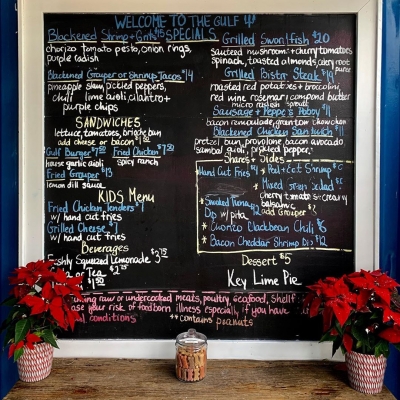 WELCOME TO THE GULF
Blackened Shrimp + Grits $15 SPECIALS
chorizo tomato pesto, onion rings,
purple radish
Blackened Grouper or Shrimp Tacos $14
pineapple slaw, pickled peppers,
chili lime aioli, cilantro +
purple chips
SANDWICHES
lettuce, tomatoes, brioche bun
add cheese or bacon
Gulf Burger Fried Chicken
house garlic aioli spicy ranch
Fried Grouper $13
lemon dill sauce
KIDS Menu
Fried Chicken Tenders
w/ hand cut fries
Grilled Cheese
w/ hand cut fries
Beverages
Freshly Squeezed Lemonade
or Tea $2.75
$1.50
Grilled Swordfish $20
sauteed mushrooms + cherry tomatoes
spinach, toasted almonds, celery root
puree
Grilled Bistro Steak $19
roasted red potatoes + broccolini,
red wine rosemary compound butter
micro radish sprout
Sausage + Peppers Poboy
bacon remoulade, cherry tomatoes
Blackened Chicken Sandwich $11
pretzel bun, provolone bacon avocado
sambal aioli, pickled pepper
Shares + Sides
Hand Cut Fries $4
Smoked Tuna
Dip w/ pita
cherry tomatoes
balsamic
add Grouper
Chorizo Blackbean Chili $6
Bacon Cheddar Shrimp Dip $12
Dessert $5
Key Lime Pie
raw or undercooked meats, poultry, seafood, shellf
ase your risk of foodborn illness especially if you have
conditions **contains peanuts